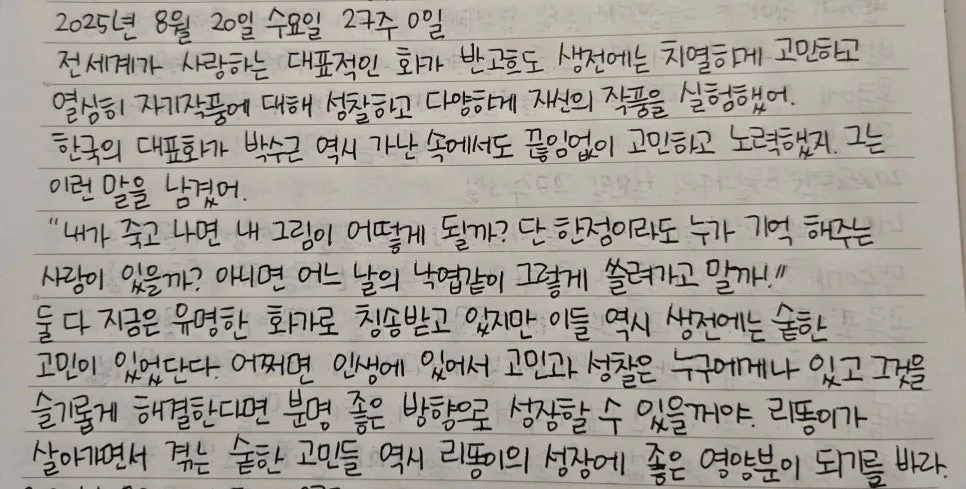 2025년 8월 20일 수요일 27주 0일
전세계가 사랑하는 대표적인 화가 반고흐도 생전에는 치열하게 고민하고
열심히 자기작품에 대해 성찰하고 다양하게 자신의 작품을 실험했어.
한국의 대표화가 박수근 역시 가난 속에서도 끊임없이 고민하고 노력했지. 그는
이런 말을 남겼어.
"내가 죽고 나면 내 그림이 어떻게 될까? 단 한정이라도 누가 기억 해주는
사람이 있을까? 아니면 어느 날의 낙엽같이 그렇게 쓸려가고 말까!"
둘 다 지금은 유명한 화가로 칭송받고 있지만 이들 역시 생전에는 숱한
고민이 있었단다. 어쩌면 인생에 있어서 고민과 성찰은 누구에게나 있고 그것을
슬기롭게 해결한다면 분명 좋은 방향으로 성장할 수 있을꺼야. 리똥이가
살아가면서 겪는 숱한 고민들 역시 리똥이의 성장에 좋은 영양분이 되기를 바라.